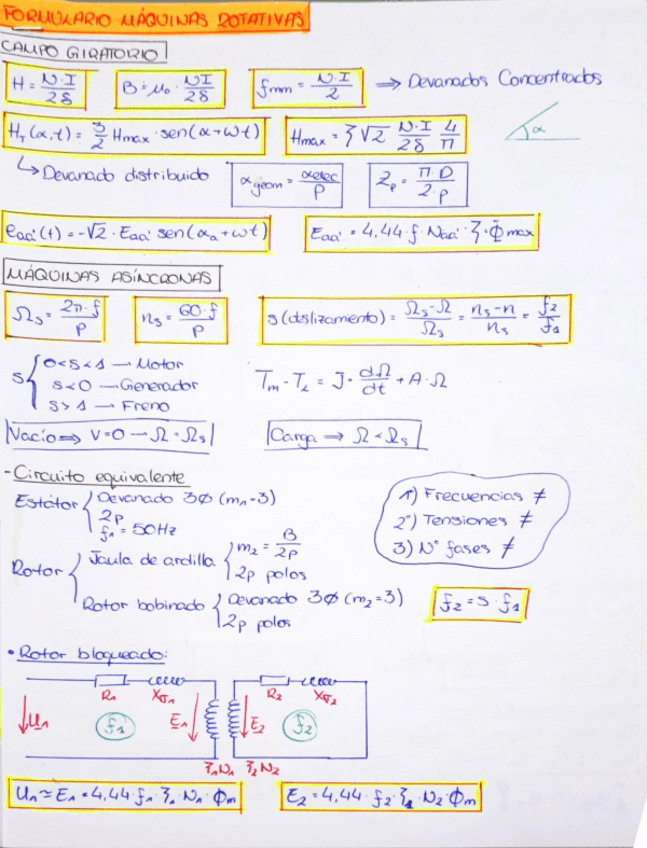 FORMULARIO MÁQUINAS ROTATIVAS
CAMPO GIRATORIO
H = N·I / 2δ   B = μ₀ · NI / 2δ   fmm = N·I / 2 ⇒ Devanados Concentrados
H_T(α,t) = 3/2 Hmax · sen(α+ωt)   Hmax = ξ √2 N·I / 2δ 4/π   α
↳ Devanado distribuido   αgeom = αelec / P   Zp = π D / 2·p
eaa'(t) = -√2 · Eaa' sen(αa+ωt)   Eaa' = 4,44 · f · Naa' · ξ · Φmax
MÁQUINAS ASÍNCRONAS
Ωs = 2π·f / P   ns = 60·f / P   s (deslizamento) = Ωs-Ω / Ωs = ns-n / ns = f2 / f1
s { 0<s<1 — Motor
s<0 — Generador   Tm - TL = J · dΩ/dt + A·Ω
s>1 — Freno
Vacío ⇒ V=0 — Ω = Ωs   Carga ⇒ Ω < Ωs
- Circuito equivalente
Estátor { Devanado 3Ø (m1=3)   1) Frecuencias ≠
2p   2º) Tensiones ≠
f1 = 50Hz   3) Nº fases ≠
Rotor { Jaula de ardilla { m2 = B / 2p
2p polos
Rotor bobinado { Devanado 3Ø (m2=3)   f2 = s · f1
2p polos
• Rotor bloqueado:
R1   Xσ1   R2   Xσ2
U1   f1   E1   E2   f2
ξ1N1   ξ2N2
U1 ≃ E1 = 4,44 · f1 · ξ1 · N1 · Φm   E2 = 4,44 · f2 · ξ2 · N2 · Φm